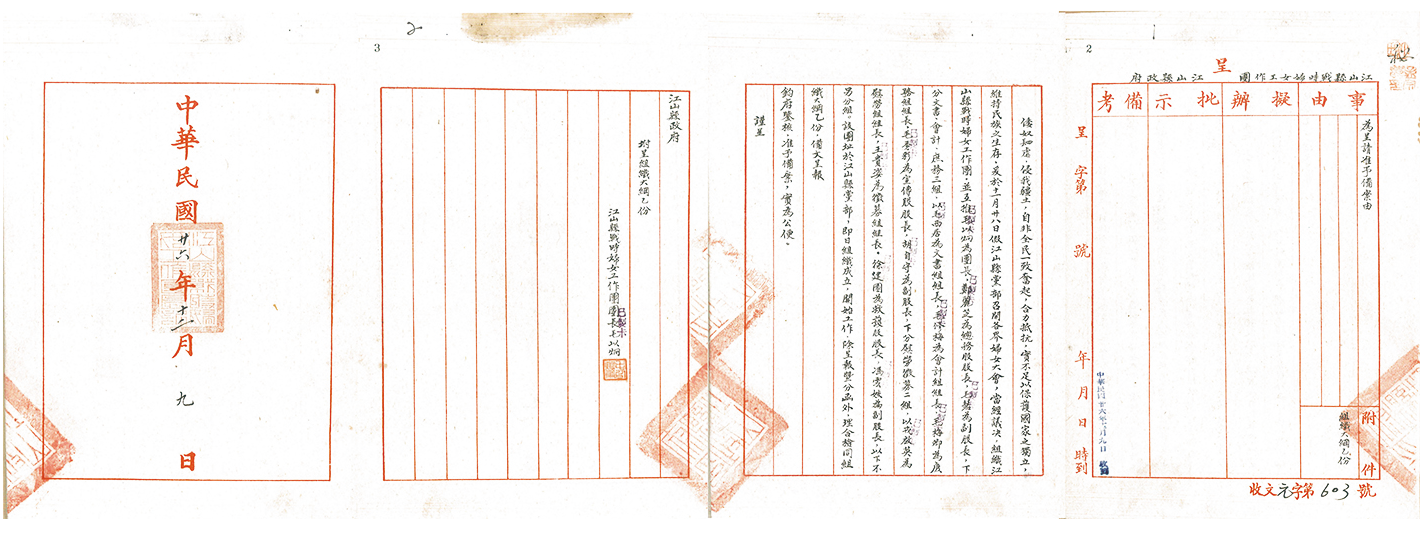 2
1
呈
江山縣戰時婦女工作團　江山縣政府
事由
擬辦
批示
備考
為呈請准予備案由
附件
組織大綱乙份
呈 字第 號
年 月 日 時到
中華民國廿六年十二月九日 收到
收文元字第603號
倭奴肆虐，侵我疆土，自非全民一致奮起，合力抵抗，實不足以保護國家之獨立，
維持民族之生存，爰於十一月廿八日假江山縣黨部召開各界婦女大會，當經議決，組織江
山縣戰時婦女工作團，並互推毛以炯為團長，鄭麗芝為總務股股長，為副股長，下
分文書、會計、庶務三組，以毛西居為文書組組長，為會計組組長，為庶
務組組長，毛彥影為宣傳股股長，胡自守為副股長，下分慰勞徵募二組，以戎啟英為
慰勞組組長，王貴姿為徵募組組長，徐建團為救護股股長，馮賓姒為副股長，以下不
另分組。該團址於江山縣黨部，即日組織成立，開始工作，除呈報暨分函外，理合檢同組
織大綱乙份，備文呈報
鈞府鑒核，准予備案，實為公便。
謹呈
2
3
江山縣政府
附呈組織大綱乙份
江山縣戰時婦女工作團團長毛以炯
中華民國廿六年十二月九日